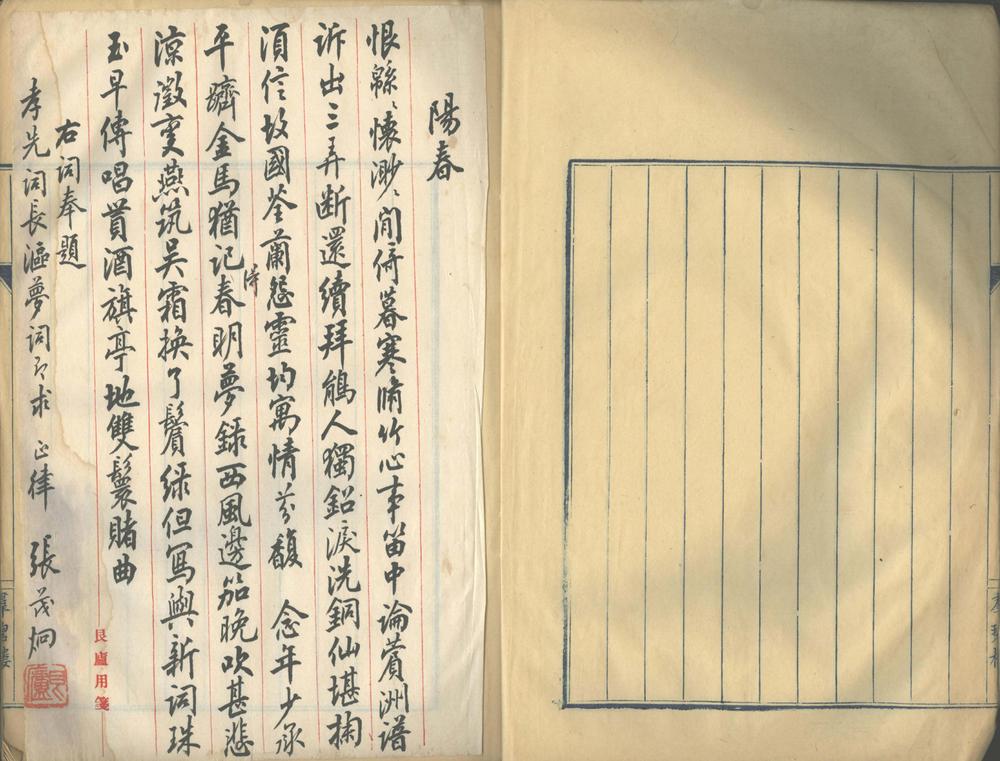 陽春
恨緜〻懷渺〻閒倚暮寒脩竹心事笛中論蘋洲譜
訴出三弄斷還續拜鵑人獨鉛淚洗銅仙堪掬
須信故國荃蘭怨靈均寓情芬馥　念年少承
平躋金馬猶記春明夢錄西風邊笳晚吹甚悲
涼徵變燕筑吳霜換了鬢綠但寫與新詞珠
玉早傳唱貰酒旗亭地雙鬟賭曲
右詞奉題
孝先詞長漚夢詞即求　正律　張茂炯
艮廬用箋
艮廬
羣碧樓